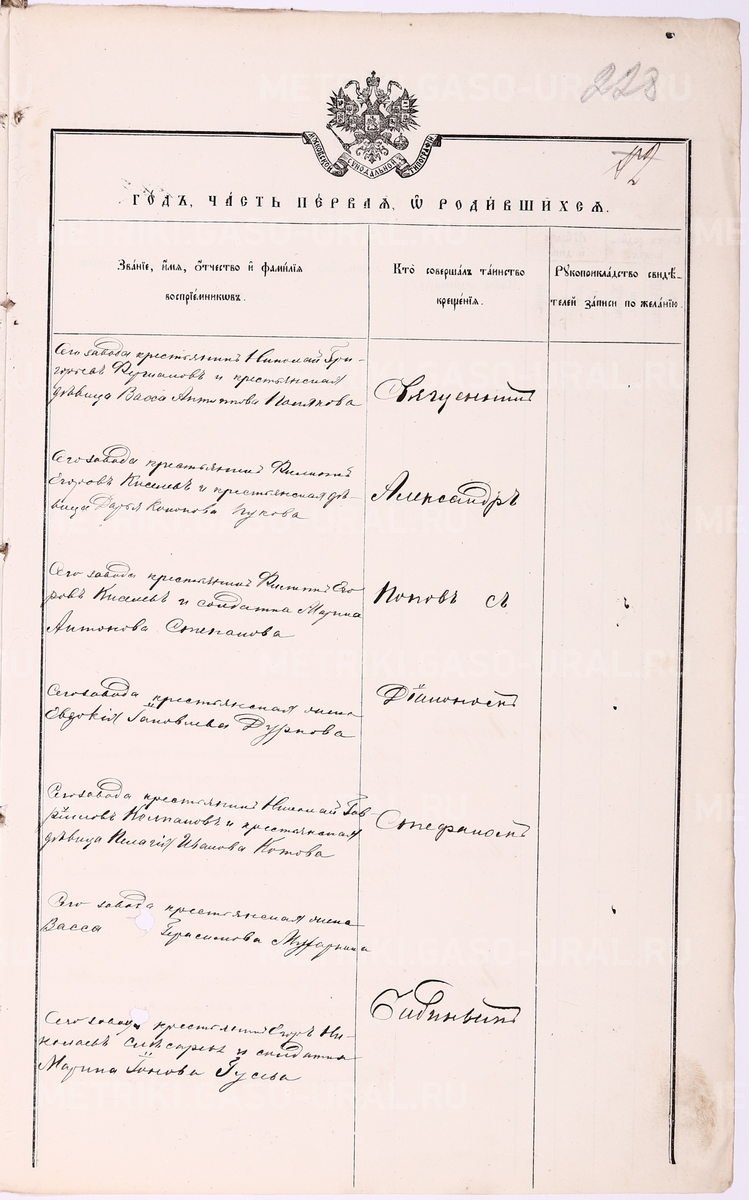 228
МОСКОВСКОЙ СѴНОДАЛЬНОЙ ТИПОГРАФІИ
ГОДЪ, ЧАСТЬ ПЕРВАЯ, Ѿ РОДИВШИХСЯ.
Званіе, имя, отчество и фамилія
воспріемниковъ.
Кто совершалъ таинство
крещенія.
Рукоприкладство свидѣ-
телей записи по желанію.
Сего завода крестьянинъ Николай Гри-
горьевъ и крестьянская
дѣвица Васса Антипова Полякова
Священникъ
Сего завода крестьянинъ Филиппъ
Егоровъ Киселевъ и крестьянская дѣ-
вица Дарья Кононова
Александръ
Сего завода крестьянинъ Филиппъ Его-
ровъ Киселевъ и солдатка Марина
Антонова Степанова
Поповъ съ
Сего завода крестьянская жена
Евдокія Іаковлева Дуркова
Діакономъ
Сего завода крестьянинъ Николай Гав-
риловъ Колпаковъ и крестьянская
дѣвица Пелагія Иванова Котова
Стефаномъ
Сего завода крестьянская жена
Васса Герасимова
Сего завода крестьянинъ Егоръ Ни-
колаевъ Слѣсаревъ и солдатка
Марина Іонова Гусева
METRIKI.GASO-URAL.RU